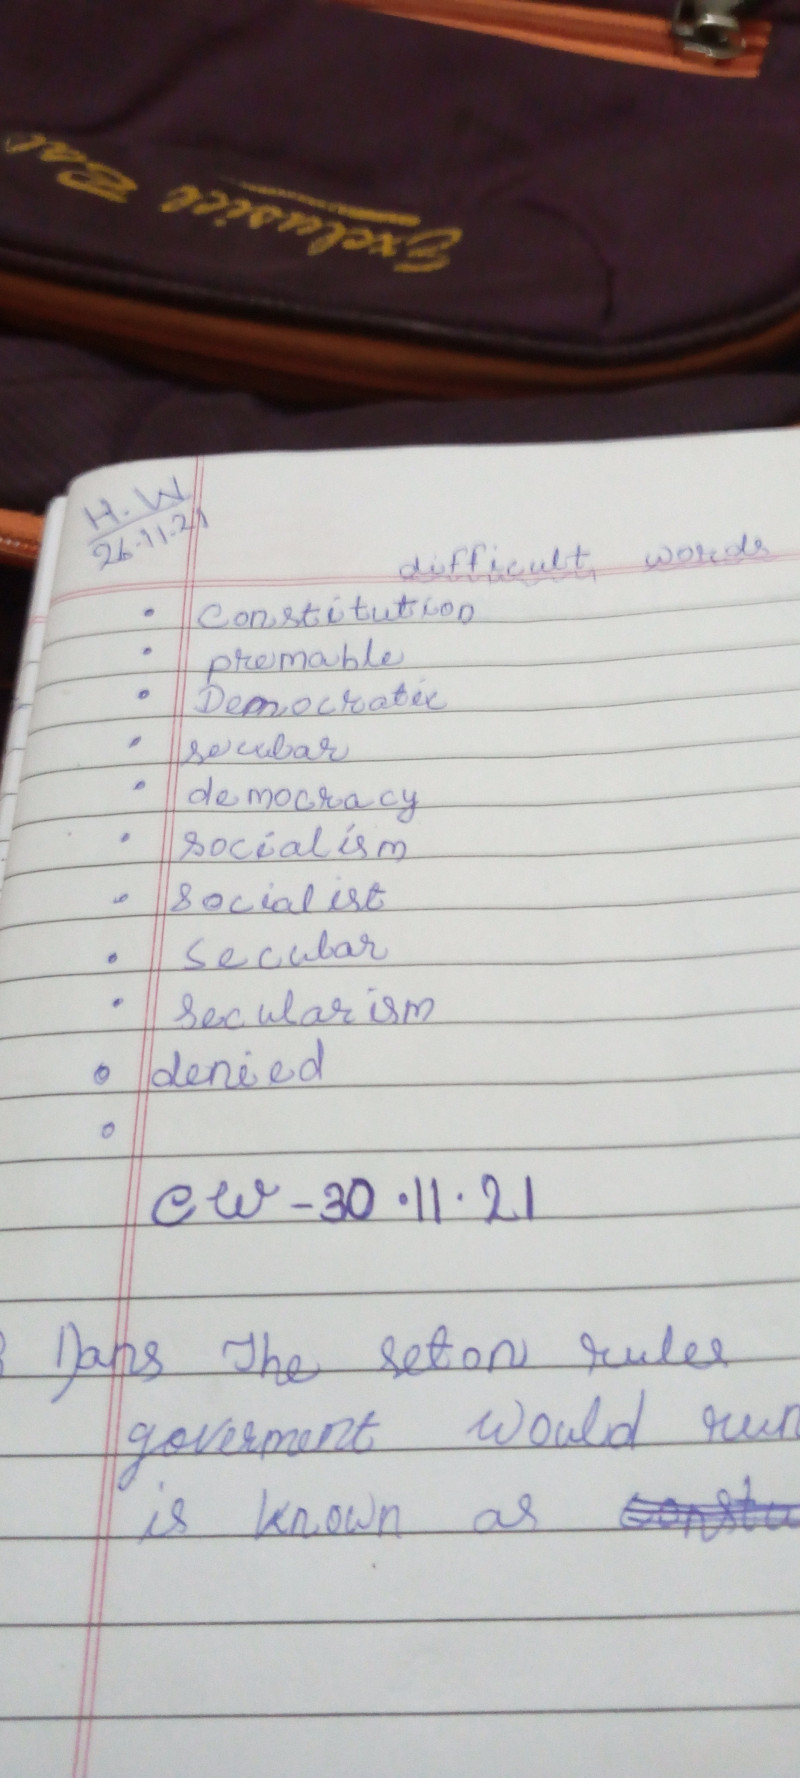 Exclusiel Bal
H.W
26.11.21
difficult words
• Constitution
• premable
• Democratic
• secular
• democracy
• socialism
• socialist
• Secular
• secularism
• denied
•
CW - 30.11.21
The set on rules
goverment would run
is known as